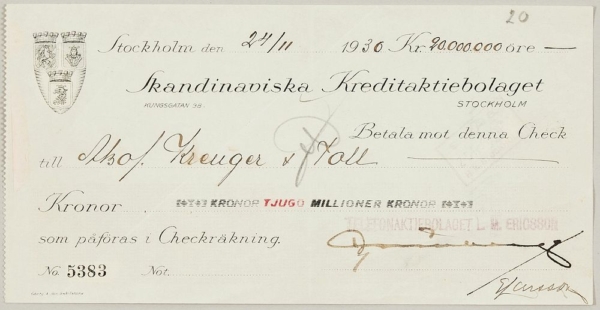 20
Stockholm den 24/11 1930 Kr. 20.000.000 öre —
Skandinaviska Kreditaktiebolaget
KUNGSGATAN STOCKHOLM
Betala mot denna Check
till Kreuger & Toll
Kronor KRONOR TJUGO MILLIONER KRONOR
TELEFONAKTIEBOLAGET L. M. ERICSSON
som påföras i Checkräkning.
No. 5383 Not.